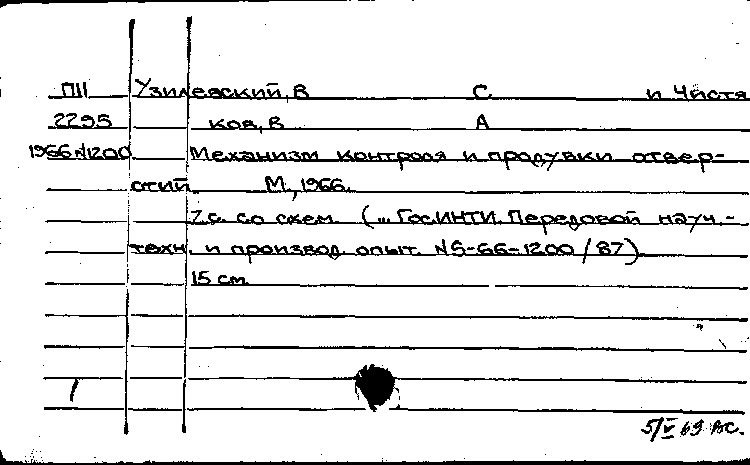 П11 Узилевский, В С и Чистя
2295 ков, В А
1966 N1200 Механизм контроля и продувки отвер-
стий М., 1966.
7 с. со схем. (... ГосИНТИ. Передовой науч.-
техн. и производ. опыт. N5-66-1200/87)
15 см.
5/V 69 ВС.